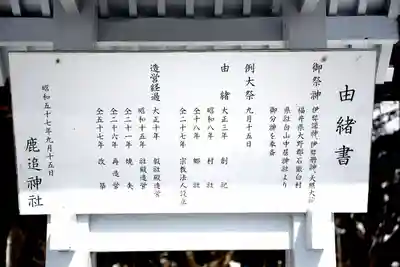 由緒書
御祭神 伊弉諾神 伊弉册神 天照大
福井県大野郡石徹白村
県社白山中居神社より
御分神を奉斎
例大祭 九月十五日
由緒 大正三年 創祀
昭和八年 村社
仝十八年 郷社
仝二十七年 宗教法人設立
造営経過 大正十年 仮社殿造営
昭和十五年 社殿造営
仝二十一年 焼失
仝二十六年 再造営
仝五十七年 改築
昭和五十七年九月十五日
鹿追神社